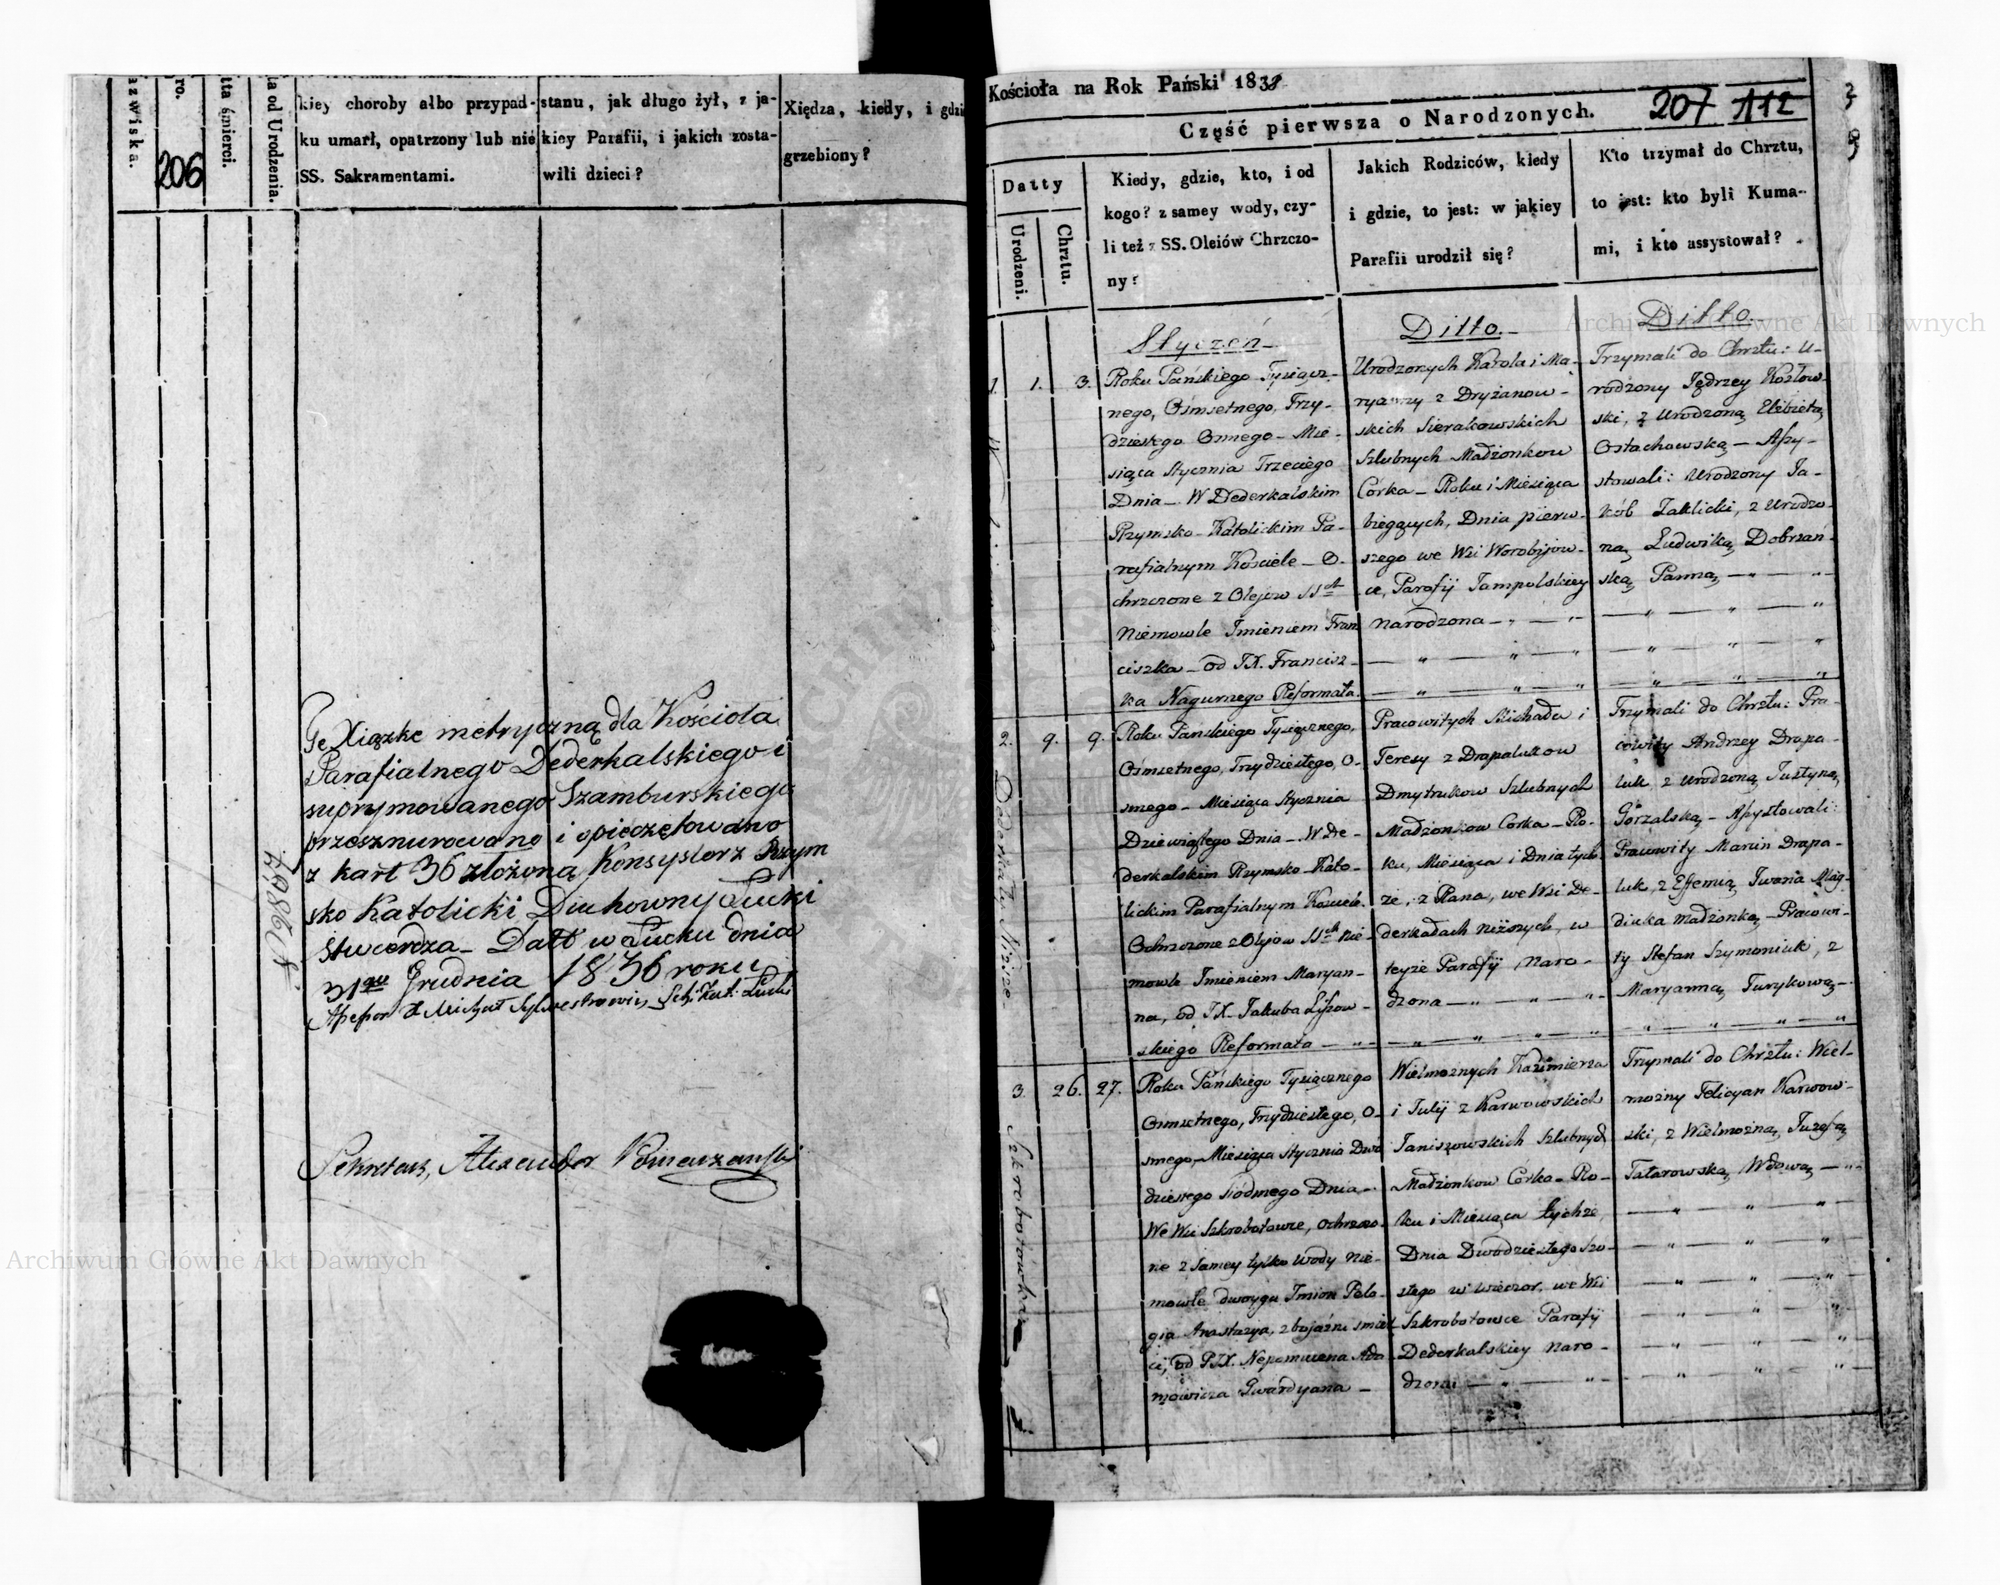 azwiska.
ro.
206
ta śmierci.
la od Urodzenia.
kiey choroby albo przypad-
ku umarł, opatrzony lub nie
SS. Sakramentami.
stanu, jak długo żył, z ja-
kiey Parafii, i jakich zosta-
wili dzieci?
Xiędza, kiedy, i gdzie
grzebiony?
Tę Xiązkę metryczną dla Kościoła
Parafialnego Dederkalskiego i
suprymowanego Szamburskiego
przesznurowano i opieczętowano
z kart 36 złożoną Konsystorz Rzym
sko Katolicki Duchowny Łucki
stwierdza - Datt w Łucku dnia
31go Grudnia 1836 roku
Assessor X Michał Sylwestrowicz
Sekretarz, Alexander
Archiwum Główne Akt Dawnych
Kościoła na Rok Pański 1838
Część pierwsza o Narodzonych.
207 112
Datty
Urodzeni.
Chrztu.
Kiedy, gdzie, kto, i od
kogo? z samey wody, czy-
li też z SS. Oleiów Chrzczo-
ny?
Jakich Rodziców, kiedy
i gdzie, to jest: w jakiey
Parafii urodził się?
Kto trzymał do Chrztu,
to jest: kto byli Kuma-
mi, i kto assystował?
Archiwum Główne Akt Dawnych
Styczeń
1. 1. 3.
Roku Pańskiego Tysiącz-
nego, Ośmsetnego, Trzy-
dziestego Osmego - Mie-
siąca Stycznia Trzeciego
Dnia - W Dederkalskim
Rzymsko-Katolickim Pa-
rafialnym Kościele - O-
chrzczone z Olejow SSch
Niemowle Imieniem Fran
ciszka - od JX. Francisz-
ka Nagurnego Reformata.
Ditto.
Urodzonych Karola i Ma-
ryanny z Dryżanow-
skich Sierakowskich
Szlubnych Małżonkow
Córka - Roku i Miesiąca
bieżących, Dnia pierw-
szego we Wsi Worobijow-
ce, Parafij Jampolskiey
narodzona - " - "
Ditto.
Trzymali do Chrztu: U-
rodzony Jędrzey Kozłow-
ski, z Urodzoną Elżbietą
Ostachowską - Assy-
stowali: Urodzony Ja-
kób Zaklicki, z Urodzo-
ną Ludwiką Dobrzań-
ską Panną - " - "
2. 9. 9.
Dederkały Niższe
Roku Pańskiego Tysiącznego,
Ośmsetnego, Trzydziestego, O-
smego - Miesiąca Stycznia
Dziewiątego Dnia - W De-
derkalskim Rzymsko-Kato-
lickim Parafialnym Kościele.
Ochrzczone z Olejów SSch Nie-
mowle Imieniem Maryan-
na, od JX. Jakuba Lissow-
skiego Reformata - " -
Pracowitych Michała i
Teresy z Drapalukow
Dmytrukow Szlubnych
Małżonkow Corka - Ro-
ku, Miesiąca i Dnia tych
że, z Rana, we Wsi De-
derkałach niższych, w
teyże Parafij Naro-
dzona - " - " - "
Trzymali do Chrztu: Pra-
cowity Andrzey Drapa-
luk, z Urodzoną Justyną
Górzalską - Assystowali:
Pracowity Marcin Drapa-
luk, z Efemią Iwana
Małżonką - Pracowi-
ty Stefan Szymoniuk, z
Maryanną Turykową -
3. 26. 27.
Szkrobotówka
Roku Pańskiego Tysiącznego
Osmsetnego, Trzydziestego, O-
smego, Miesiąca Stycznia Dwó
dziestego Siódmego Dnia -
We Wsi Szkrobotowce, ochrzczo-
ne z Samey tylko Wody Nie-
mowle dwoyga Imion Pela-
gia Anastazya, z bojaźni śmier
ci, od PJX. Nepomucena Ada
mowicza Gwardyana -
Wielmożnych Kazimierza
i Julij z Karwowskich
Janiszowskich Szlubnych
Małżonkow Córka - Ro-
ku i Miesiąca tychże,
Dnia Dwodziestego Szo-
stego w wieczor, we Wsi
Szkrobotowce Parafij
Dederkalskiey naro-
dzona - " - "
Trzymali do Chrztu: Wiel-
możny Felicyan Karwow-
ski, z Wielmożną Juzefą
Tatarowską Wdową - "